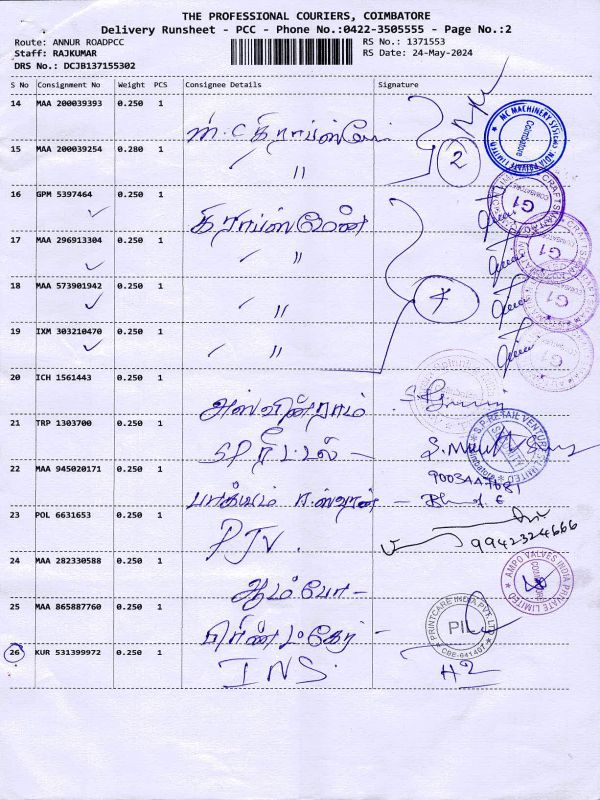 THE PROFESSIONAL COURIERS, COIMBATORE
Delivery Runsheet - PCC - Phone No.:0422-3505555 - Page No.:2
Route: ANNUR ROADPCC
RS No.: 1371553
Staff: RAJKUMAR
RS Date: 24-May-2024
DRS No.: DCJB137155302
S No Consignment No Weight PCS Consignee Details Signature
14 MAA 200039393 0.250 1
15 MAA 200039254 0.280 1 〃 2
16 GPM 5397464 0.250 1
17 MAA 296913304 0.250 1 〃
18 MAA 573901942 0.250 1 〃
19 IXM 303210470 0.250 1 〃
20 ICH 1561443 0.250 1 அஸ்வின்ராம்
21 TRP 1303700 0.250 1 SP ரீட்டல் -
22 MAA 945020171 0.250 1
23 POL 6631653 0.250 1 PJV. 9942324666
24 MAA 282330588 0.250 1 ஆம்போ -
25 MAA 865887760 0.250 1
26 KUR 531399972 0.250 1 INS. H2
MC MACHINERY SYSTEMS INDIA PRIVATE LIMITED
Coimbatore
G1
G1
G1
G1
S.P.RETAIL VENTURES LIMITED
AMPO VALVES INDIA PRIVATE LIMITED
PRINTCARE INDIA PVT LTD
PIL
CBE-641407